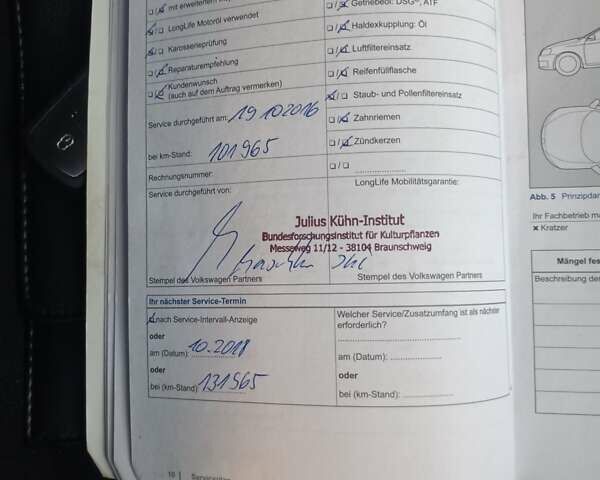 mit erweitertem
Getriebeöl: DSG®, ATF
LongLife Motoröl verwendet
Haldexkupplung: Öl
Karosserieprüfung
Luftfiltereinsatz
Reparaturempfehlung
Reifenfüllflasche
Kundenwunsch
(auch auf dem Auftrag vermerken)
Staub- und Pollenfiltereinsatz
Service durchgeführt am: 19 10 2016
Zahnriemen
Zündkerzen
bei km-Stand: 101965
Rechnungsnummer:
LongLife Mobilitätsgarantie:
Service durchgeführt von:
Julius Kühn-Institut
Bundesforschungsinstitut für Kulturpflanzen
Messeweg 11/12 - 38104 Braunschweig
Stempel des Volkswagen Partners
Stempel des Volkswagen Partners
Ihr nächster Service-Termin
nach Service-Intervall-Anzeige
oder
am (Datum): 10.2018
oder
bei (km-Stand): 131965
Welcher Service/Zusatzumfang ist als nächster
erforderlich?
am (Datum):
oder
bei (km-Stand):
16
Abb. 5 Prinzipdar
Ihr Fachbetrieb
× Kratzer
Mängel fes
Beschreibung der